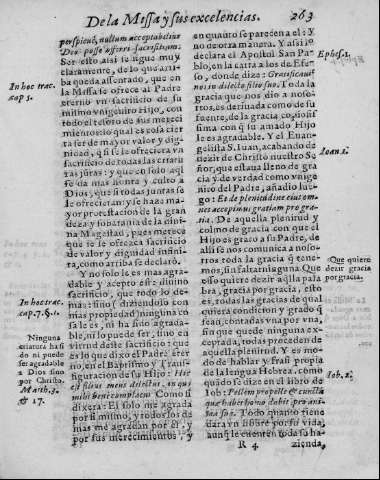 De la Missa y sus excelencias. 263
perspicuè, nullum acceptabilius
Deo posse offerri sacrificium:
Ser esto assi se sigue muy
claramente, de lo que arri-
ba queda assentado, que en
la Missa se ofrece al Padre
eterno vn sacrificio de su
mismo vnigenito Hijo, con
todo el tesoro de sus mereci-
mientos: lo qual es cosa cier
ta ser de mayor valor y dig-
nidad, q̃ si se le ofreciera vn
sacrificio de todas las criatu
ras juntas: y que en solo aqui
se da mas honra y culto a
Dios, que si todas juntas se
le ofrecieran: y se haze ma-
yor protestacion de la gran
deza y soberania de la infi-
na Magestad, pues merece
que se le ofrezca sacrificio
de valor y dignidad infini-
ta, como arriba se declarò.
Y no solo es mas agra-
dable y acepto este diuino
sacrificio, que todo lo de-
mas: sino (diziendolo con
mas propiedad) ninguna co
sa le es, ni ha sido agrada-
ble, ni lo puede ser, sino en
virtud deste sacrificio: que
es lo que dixo el Padre eter
no, en el Baptismo y Trans
figuracion de su Hijo: Hic
est filius meus dilectus, in quo
mihi bene complacui. Como si
dixera: El solo por si
mismo, y todos los de
mas me agradan por el, y
por sus merecimientos, y
en quanto se parecen a el: Y
no de otra manera. Y assi lo
declara el Apostol San Pa-
blo, en la carta a los de Efe-
so, donde dize: Gratificauit
nos in dilecto filio suo. Toda la
gracia que nos dio a noso-
tros, es deriuada como de su
fuente, de la gracia, co
sima a fin con q̃ su amado Hijo
le es agradable. Y el Euan-
gelista S. Iuan, acabando de
dezir de Christo nuestro Se
ñor, que estaua lleno de gra-
cia y de verdad como vnige
nito del Padre, añadio lue-
go: Et de plenitudine eius om-
nes accepimus gratiam pro gra-
tia. De aquella plenitud y
colmo de gracia con que el
Hijo es grato a su Padre, de
alli se nos comunica a noso-
tros toda la gracia q̃ tene-
mos, sin faltar ninguna. Que
esso quiere dezir aq̃lla pala
bra, gracia por gracia, esto
es, todas las gracias de qual
quiera condicion y grado q̃
sean, contadas vna por vna,
sin que quede ninguna ex-
ceptada, todas proceden de
aquella plenitud. Y es mo-
do de hablar y frasi propia
de la lengua Hebrea, como
quãdo se dize en el libro de
Iob: Pellem pro pelle & cuncta
quæ habet homo dabit pro ani-
ma sua. Todo quanto tiene
dara vn hõbre por su vida,
aunq̃ le cuenten toda su ha-
R 4 zienda,
In hoc trac.
cap 5.
In hoc trac.
cap.7.§.1.
Ninguna
criatura ha si
do ni puede
ser agradable
a Dios sino
por Christo.
Matth.3.
& 17.
Ephes.1.
Ioan 1.
Que quiere
dezir gracia
por gracia.
Iob.2.